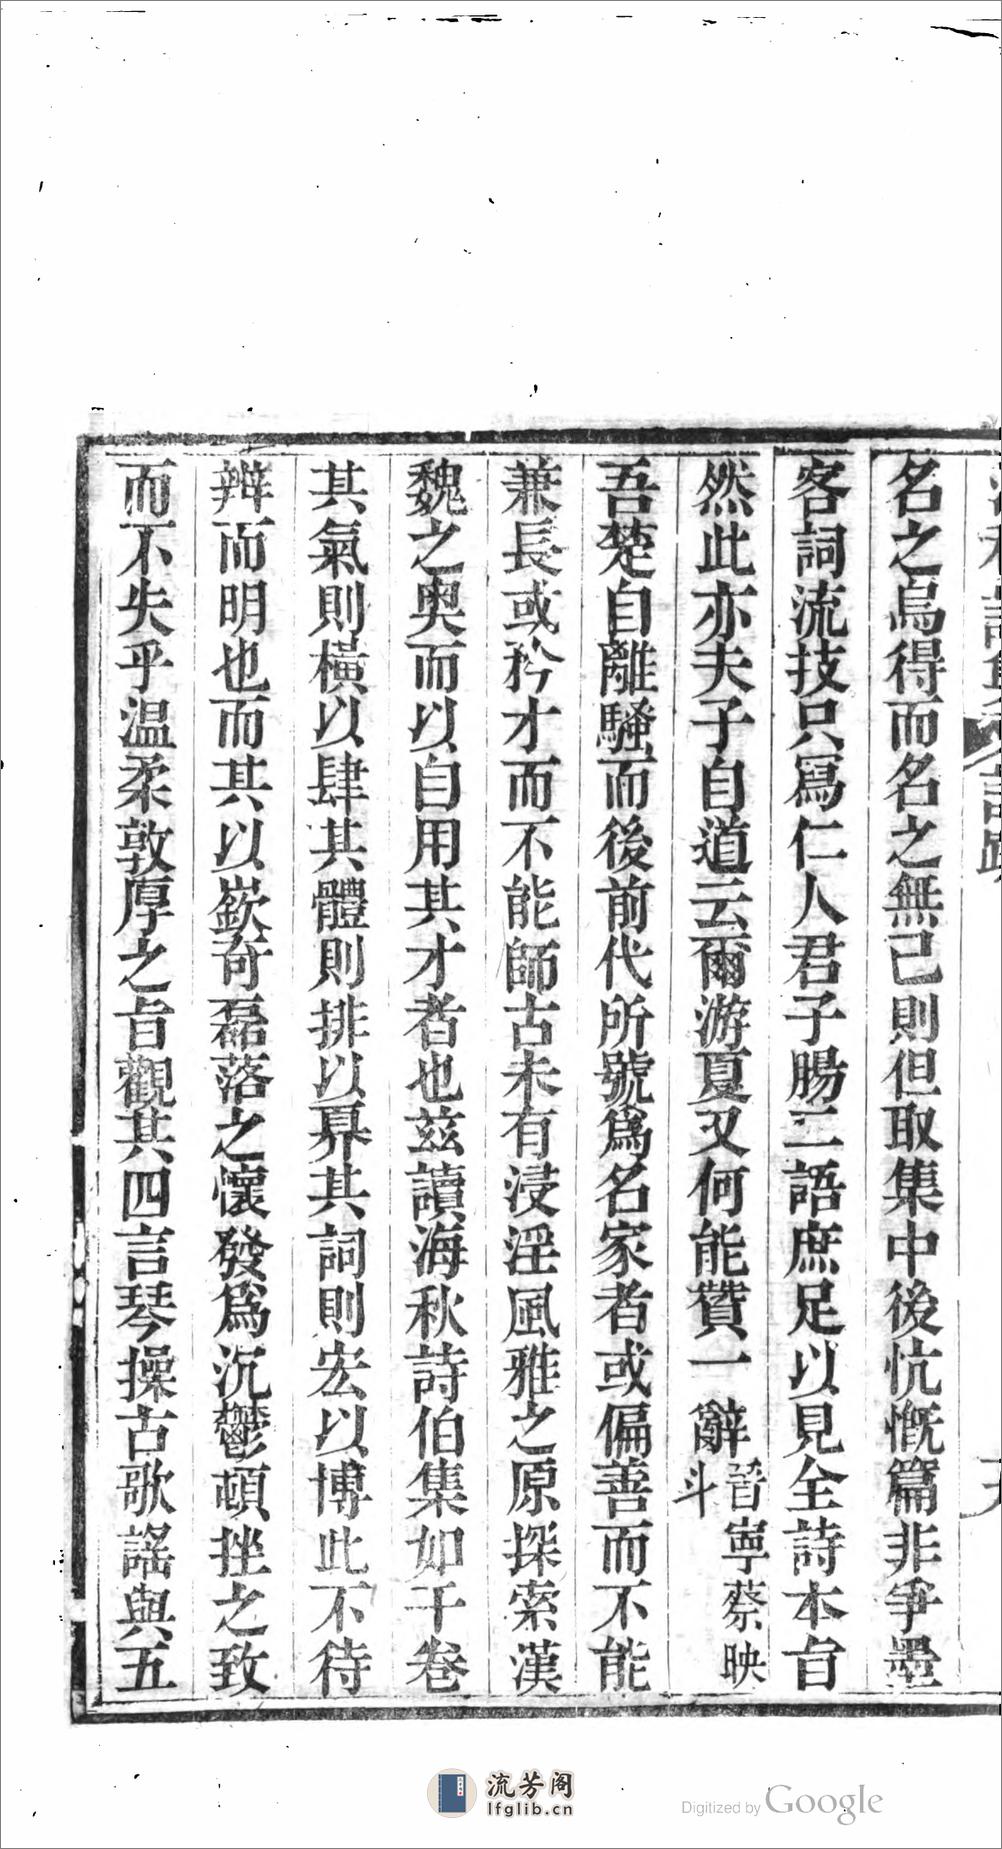 名之烏得而名之無已則但取集中後忼慨篇非爭墨
客詞流技只寫仁人君子腸二語庶足以見全詩本旨
然此亦夫子自道云爾游夏又何能贊一辭晉寧蔡映斗
吾楚自離騷而後前代所號爲名家者或偏善而不能
兼長或矜才而不能師古未有浸淫風雅之原探索漢
魏之奥而以自用其才者也兹讀海秋詩伯集如干卷
其氣則橫以肆其體則排以奡其詞則宏以博此不待
辯而明也而其以嶔奇磊落之懷發爲沉鬱頓挫之致
而不失乎温柔敦厚之旨觀其四言琴操古歌謡與五
流芳阁
lfglib.cn
Digitized by Google